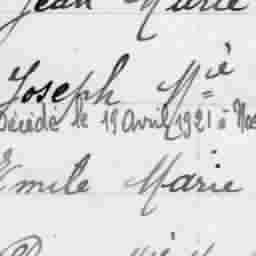 Jean Marie
Joseph Mie
Décédé le 19 Avril 1921 à
Emile Marie